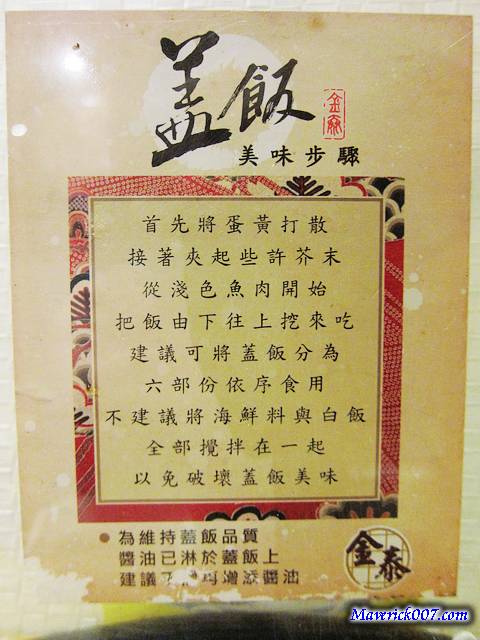 盖飯
金泰
美味步驟
首先將蛋黃打散
接著夾起些許芥末
從淺色魚肉開始
把飯由下往上挖來吃
建議可將蓋飯分為
六部份依序食用
不建議將海鮮料與白飯
全部攪拌在一起
以免破壞蓋飯美味
為維持蓋飯品質
醬油已淋於蓋飯上
建議不再增添醬油
金泰
Mawrick007.com